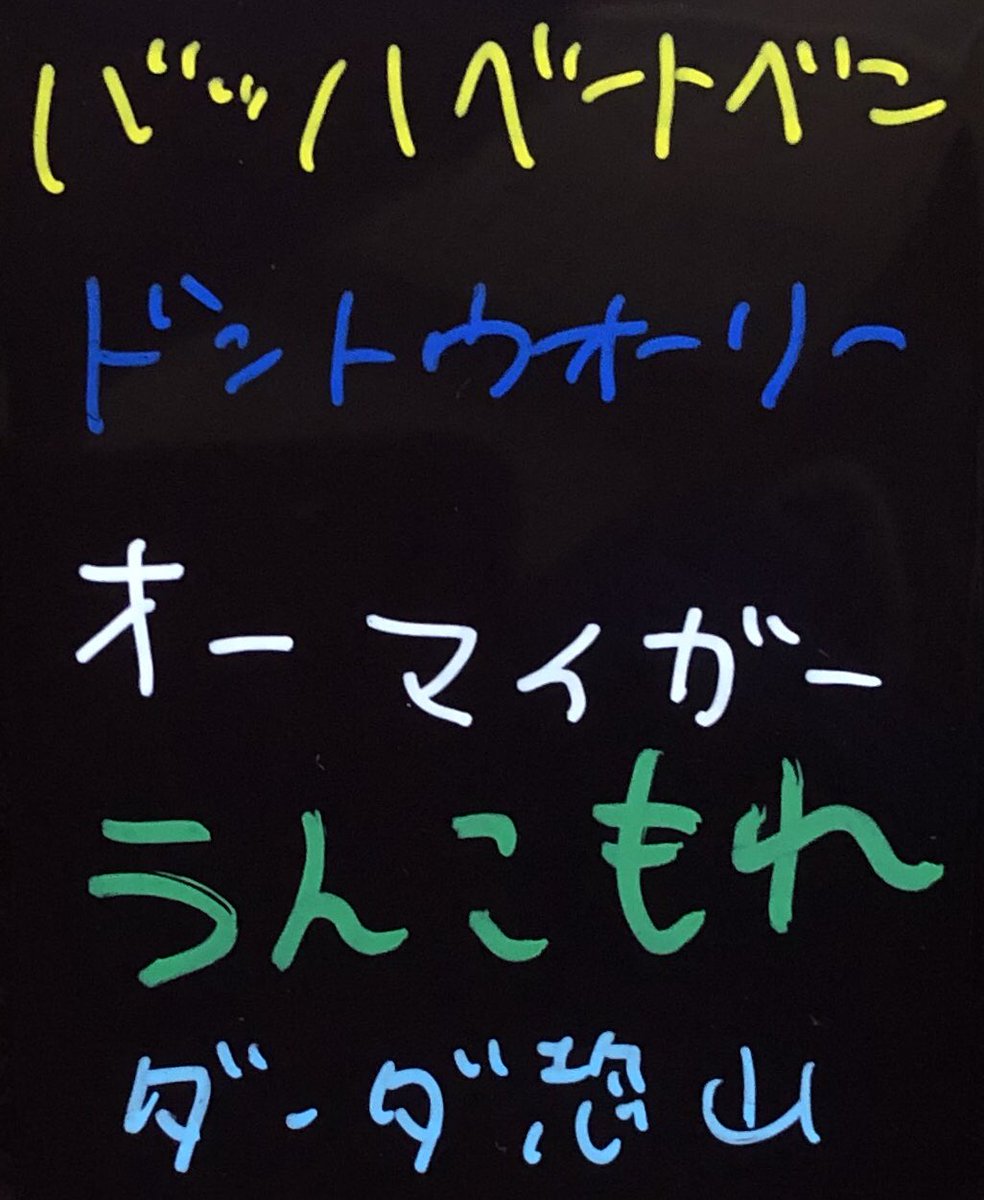 バッハベートベン
ドントウオーリー
オーマイガー
うんこもれ
ダ・ダ恐山